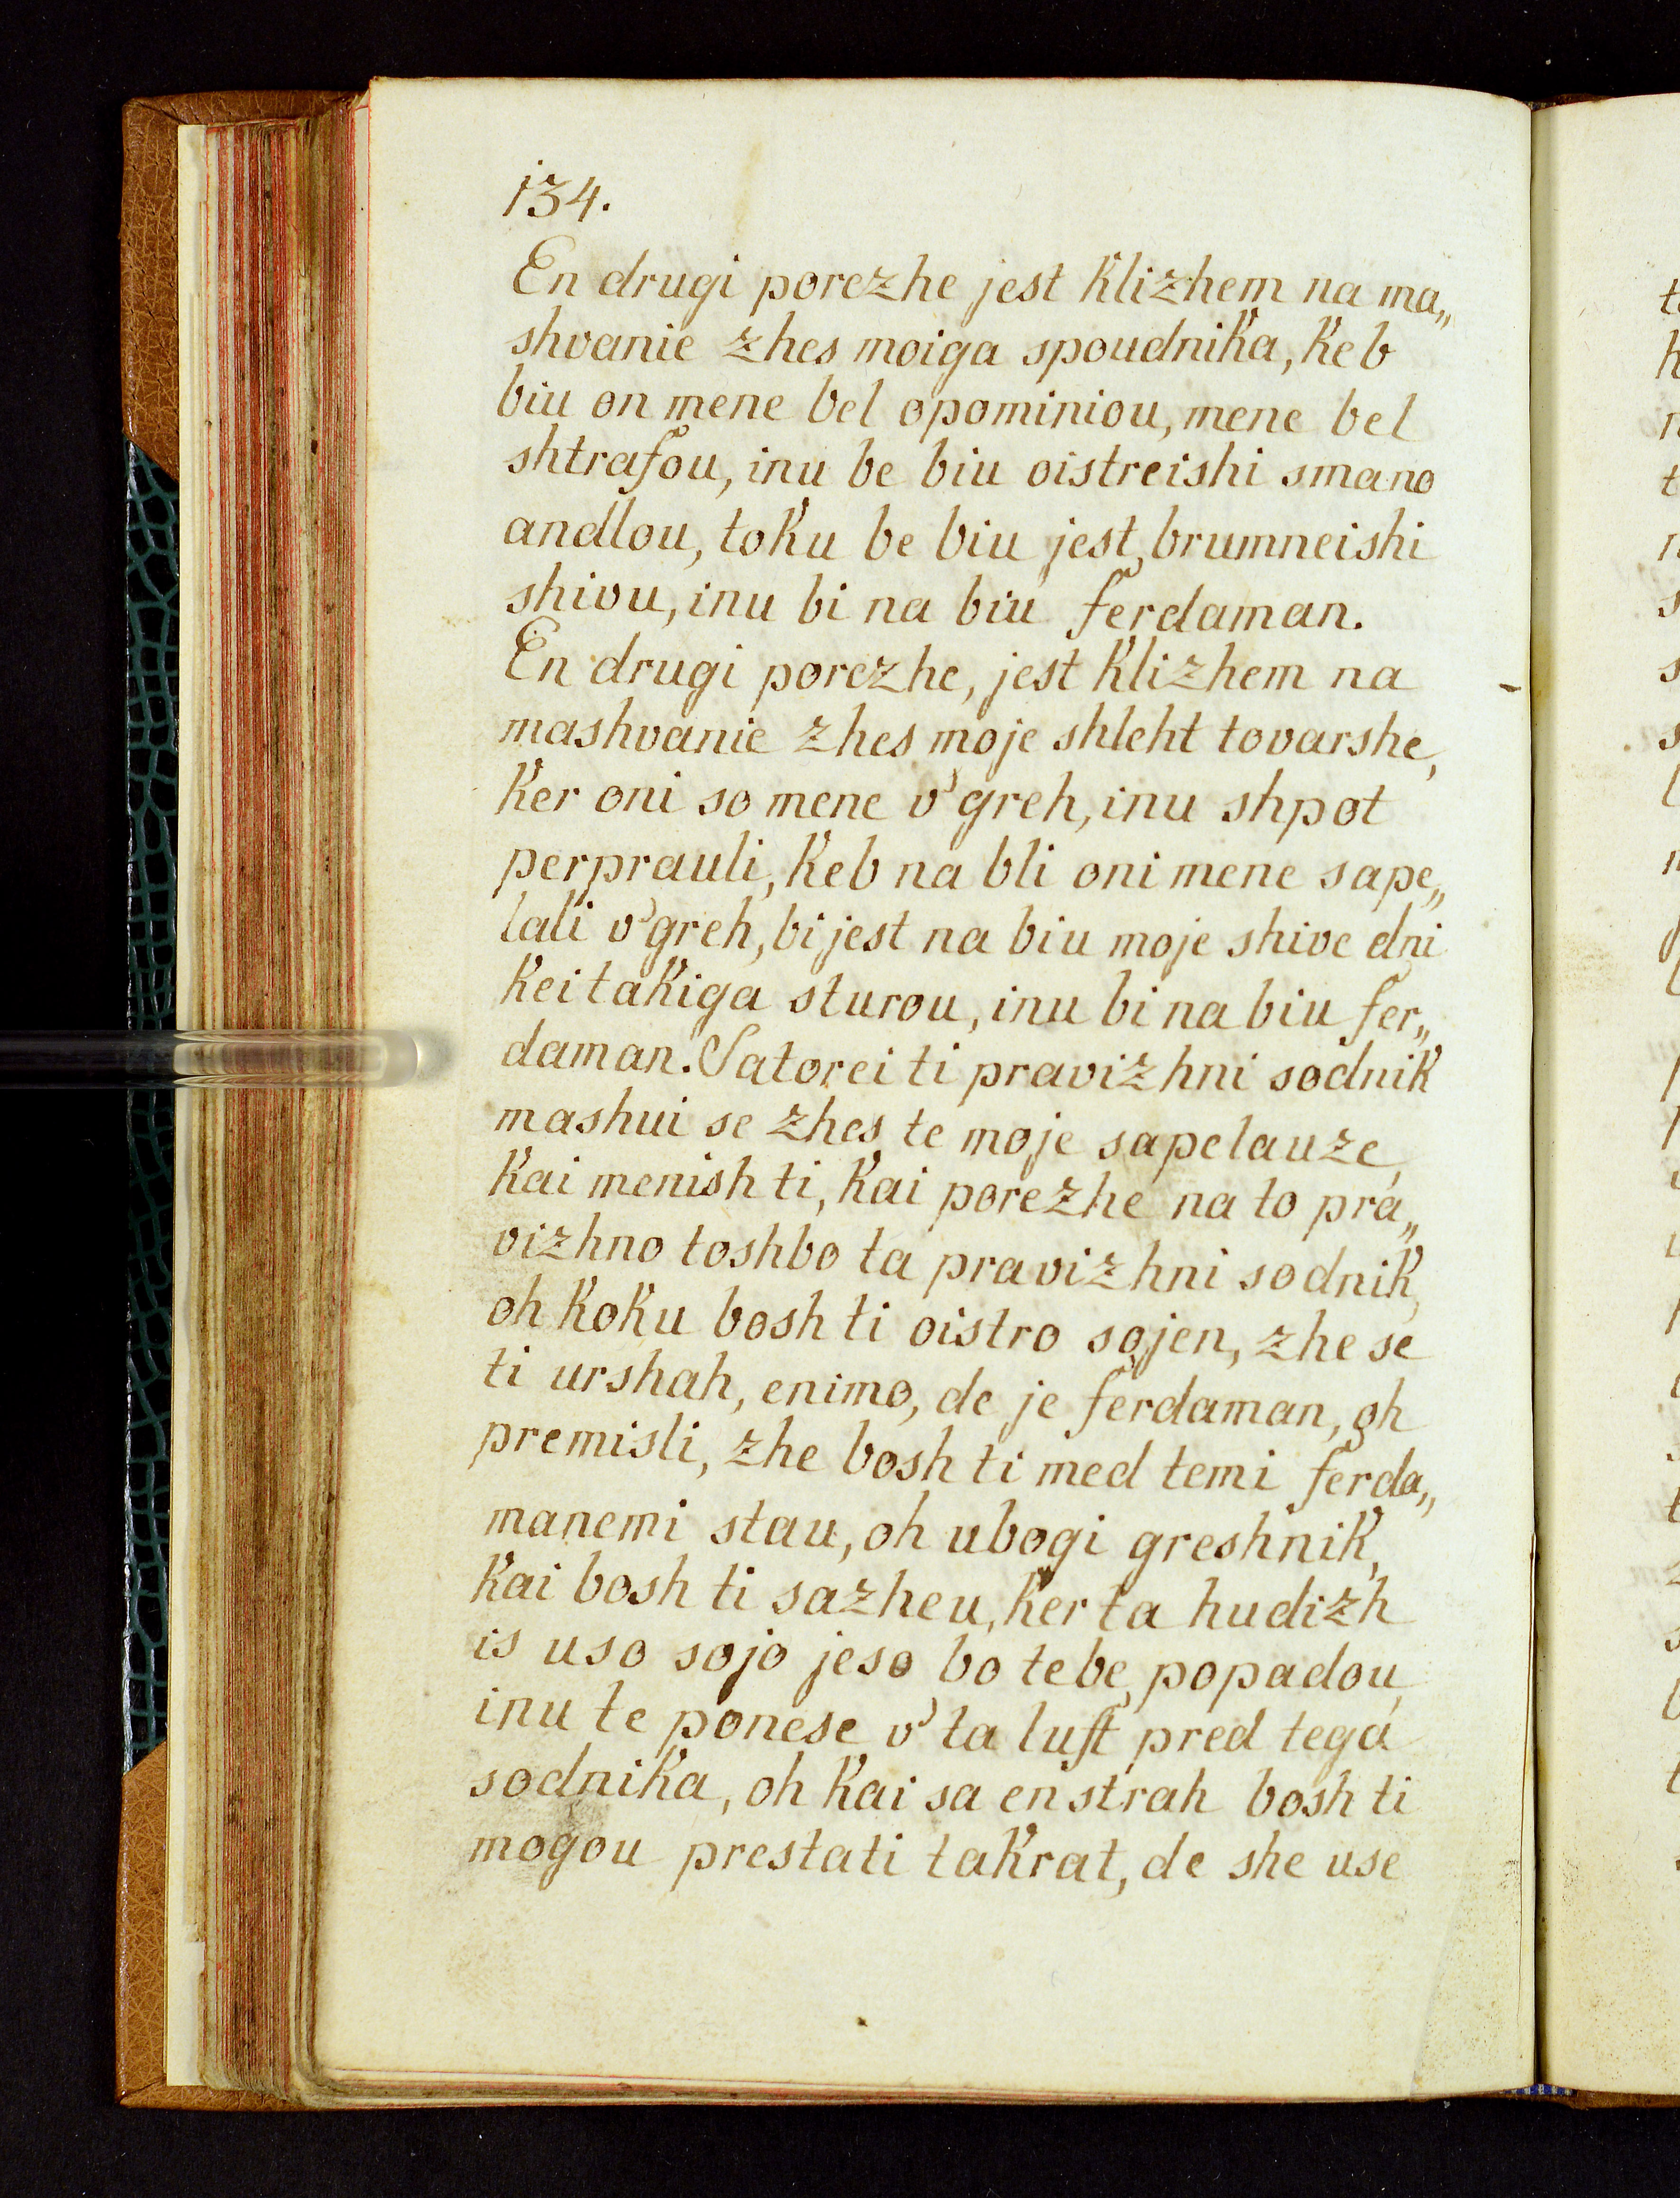 134.
En drugi porezhe jest klizhem na ma„
shvanie zhes moiga spoudnika, keb
biu on mene bel opominiou, mene bel
shtrafou, inu be biu oistreishi smano
andlou, toku be biu jest brumneishi
shivu, inu bi na biu ferdaman.
En drugi porezhe, jest klizhem na
mashvanie zhes moje shleht tovarshe,
ker oni so mene v' greh, inu shpot
perprauli, keb na bli oni mene sape„
lali v' greh, bi jest na biu moje shive dni
kei takiga sturou, inu bi na biu fer„
daman. Satorei ti pravizhni sodnik
mashui se zhes te moje sapelauze,
kai menish ti, kai porezhe na to pra„
vizhno toshbo ta pravizhni sodnik,
oh koku bosh ti oistro sojen, zhe se
ti urshah, enimo, de je ferdaman, oh
premisli, zhe bosh ti med temi ferda„
manemi stau, oh ubogi greshnik,
kai bosh ti sazheu, ker ta hudizh
is uso sojo jeso bo tebe popadou,
inu te ponese v' ta luft pred tega
sodnika, oh kai sa en strah bosh ti
mogou prestati takrat, de she use